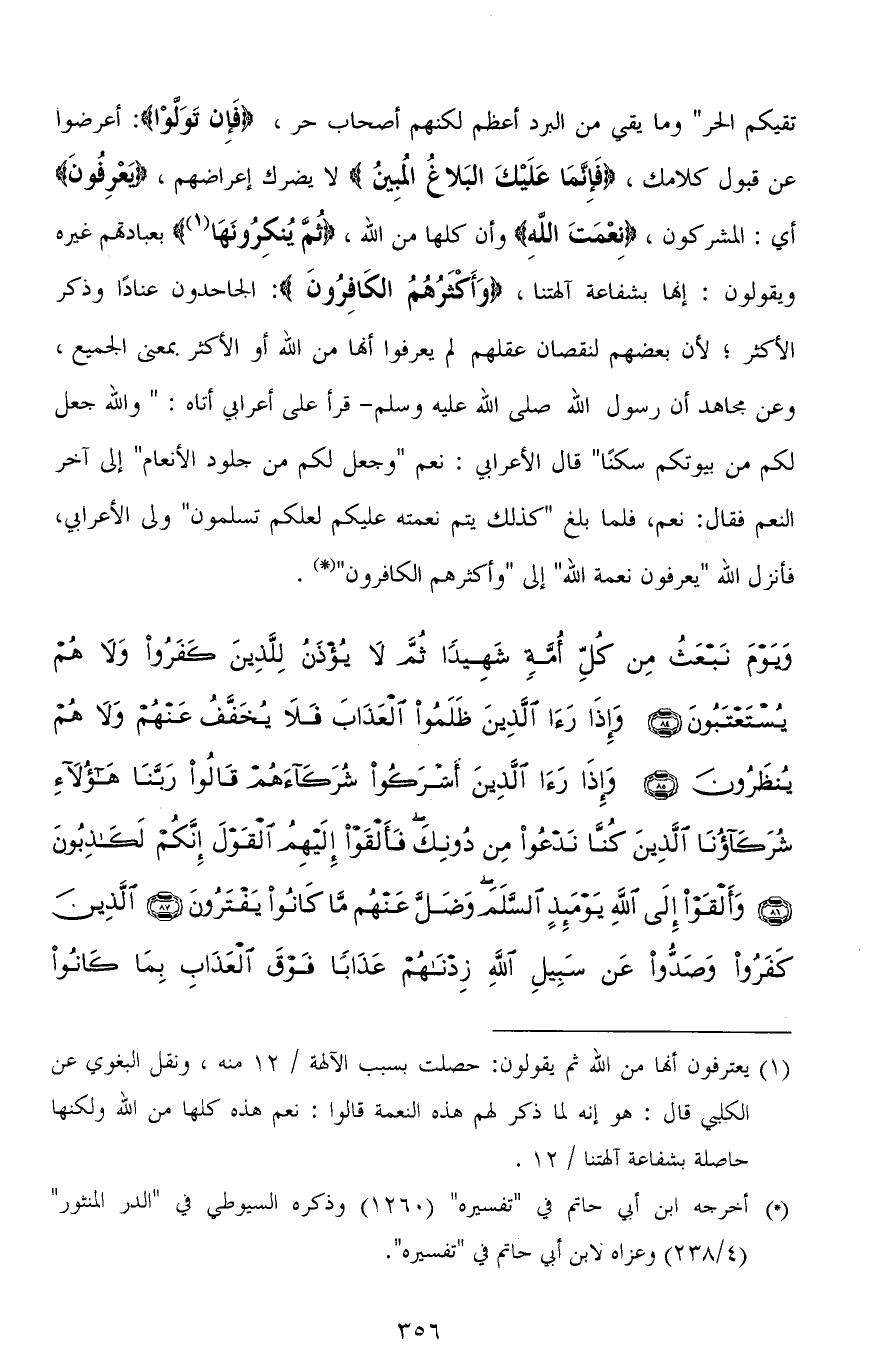 تقيكم الحر" وما يقي من البرد أعظم لكنهم أصحاب حر ، ﴿فَإِن تَوَلَّوْا﴾: أعرضوا
عن قبول كلامك ، ﴿فَإِنَّمَا عَلَيْكَ البَلاغُ المُبِينُ ﴾ لا يضرك إعراضهم ، ﴿يَعْرِفُونَ﴾
أي : المشركون ، ﴿نِعْمَتَ اللَّهِ﴾ وأن كلها من الله ، ﴿ثُمَّ يُنكِرُونَهَا(١)﴾ بعبادتهم غيره
ويقولون : إنها بشفاعة آلهتنا ، ﴿وَأَكْثَرُهُمُ الكَافِرُونَ ﴾: الجاحدون عنادًا وذكر
الأكثر ؛ لأن بعضهم لنقصان عقلهم لم يعرفوا أنها من الله أو الأكثر بمعنى الجميع ،
وعن مجاهد أن رسول الله صلى الله عليه وسلم- قرأ على أعرابي أتاه : " والله جعل
لكم من بيوتكم سكنًا" قال الأعرابي : نعم "وجعل لكم من جلود الأنعام" إلى آخر
النعم فقال: نعم، فلما بلغ "كذلك يتم نعمته عليكم لعلكم تسلمون" ولى الأعرابي،
فأنزل الله "يعرفون نعمة الله" إلى "وأكثرهم الكافرون"(*) .
وَيَوْمَ نَبْعَثُ مِن كُلِّ أُمَّةٍ شَهِيدًا ثُمَّ لَا يُؤْذَنُ لِلَّذِينَ كَفَرُواْ وَلَا هُمْ
يُسْتَعْتَبُونَ ٨٤ وَإِذَا رَءَا ٱلَّذِينَ ظَلَمُواْ ٱلْعَذَابَ فَلَا يُخَفَّفُ عَنْهُمْ وَلَا هُمْ
يُنظَرُونَ ٨٥ وَإِذَا رَءَا ٱلَّذِينَ أَشْرَكُواْ شُرَكَآءَهُمْ قَالُواْ رَبَّنَا هَـٰٓؤُلَآءِ
شُرَكَآؤُنَا ٱلَّذِينَ كُنَّا نَدْعُواْ مِن دُونِكَۖ فَأَلْقَوْاْ إِلَيْهِمُ ٱلْقَوْلَ إِنَّكُمْ لَكَـٰذِبُونَ
٨٦ وَأَلْقَوْاْ إِلَى ٱللَّهِ يَوْمَئِذٍ ٱلسَّلَمَۖ وَضَلَّ عَنْهُم مَّا كَانُواْ يَفْتَرُونَ ٨٧ ٱلَّذِينَ
كَفَرُواْ وَصَدُّواْ عَن سَبِيلِ ٱللَّهِ زِدْنَـٰهُمْ عَذَابًا فَوْقَ ٱلْعَذَابِ بِمَا كَانُواْ
(١) يعترفون أنها من الله ثم يقولون: حصلت بسبب الآلهة / ١٢ منه ، ونقل البغوي عن
الكلبي قال : هو إنه لما ذكر لهم هذه النعمة قالوا : نعم هذه كلها من الله ولكنها
حاصلة بشفاعة آلهتنا / ١٢ .
(*) أخرجه ابن أبي حاتم في "تفسيره" (١٢٦٠) وذكره السيوطي في "الدر المنثور"
(٢٣٨/٤) وعزاه لابن أبي حاتم في "تفسيره".
٣٥٦